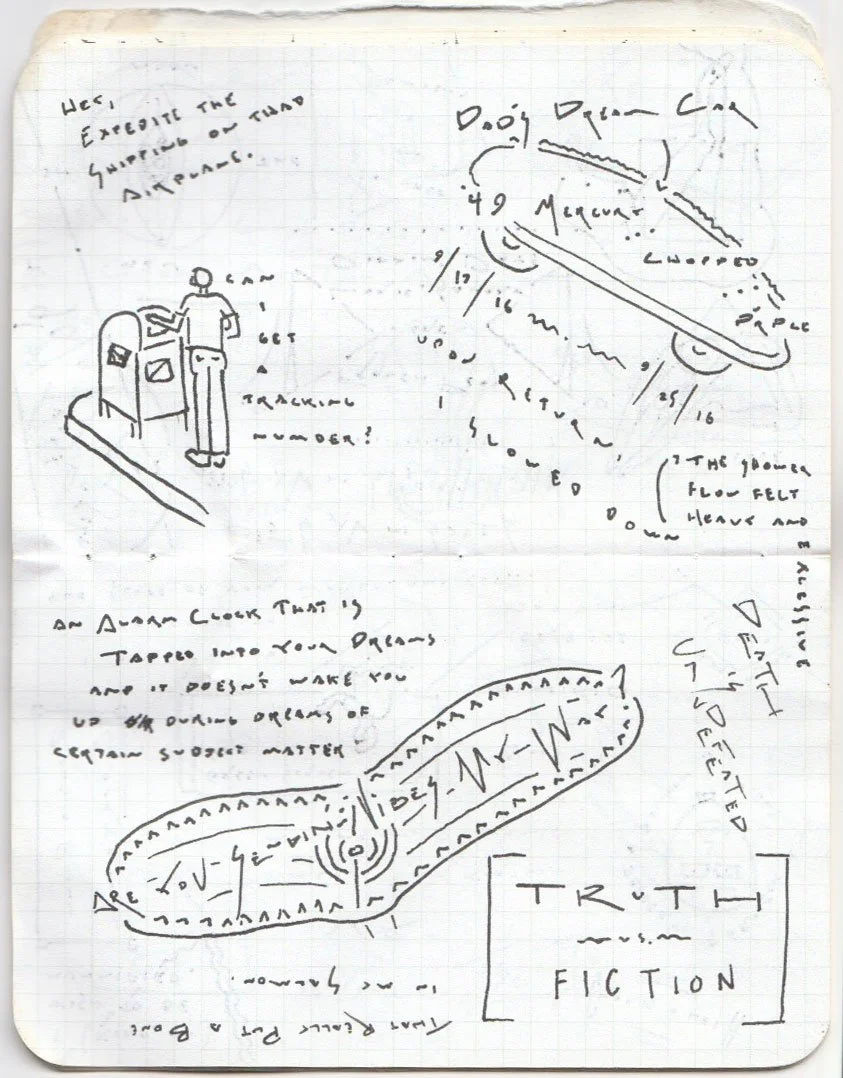 HEY,
EXPEDITE THE
SHIPPING ON THAT
AIRPLANE.
CAN
I
GET
A
TRACKING
NUMBER?
DAD'S DREAM CAR
'49 MERCURY
CHOPPED
PRPLE
9/17/16
9/25/16
UPON RETURN,
I SLOWED DOWN
THE SHOWER
FLOW FELT
HEAVY AND
EXCESSIVE
AN ALARM CLOCK THAT IS
TAPPED INTO YOUR DREAMS
AND IT DOESN'T WAKE YOU
UP DURING DREAMS OF
CERTAIN SUBJECT MATTER
DEATH
IS
UNDEFEATED
ARE YOU SENDING VIBES MY WAY?
TRUTH
MUSIM
FICTION
THAT REALLY PUT A BONE
IN MY SALMON.